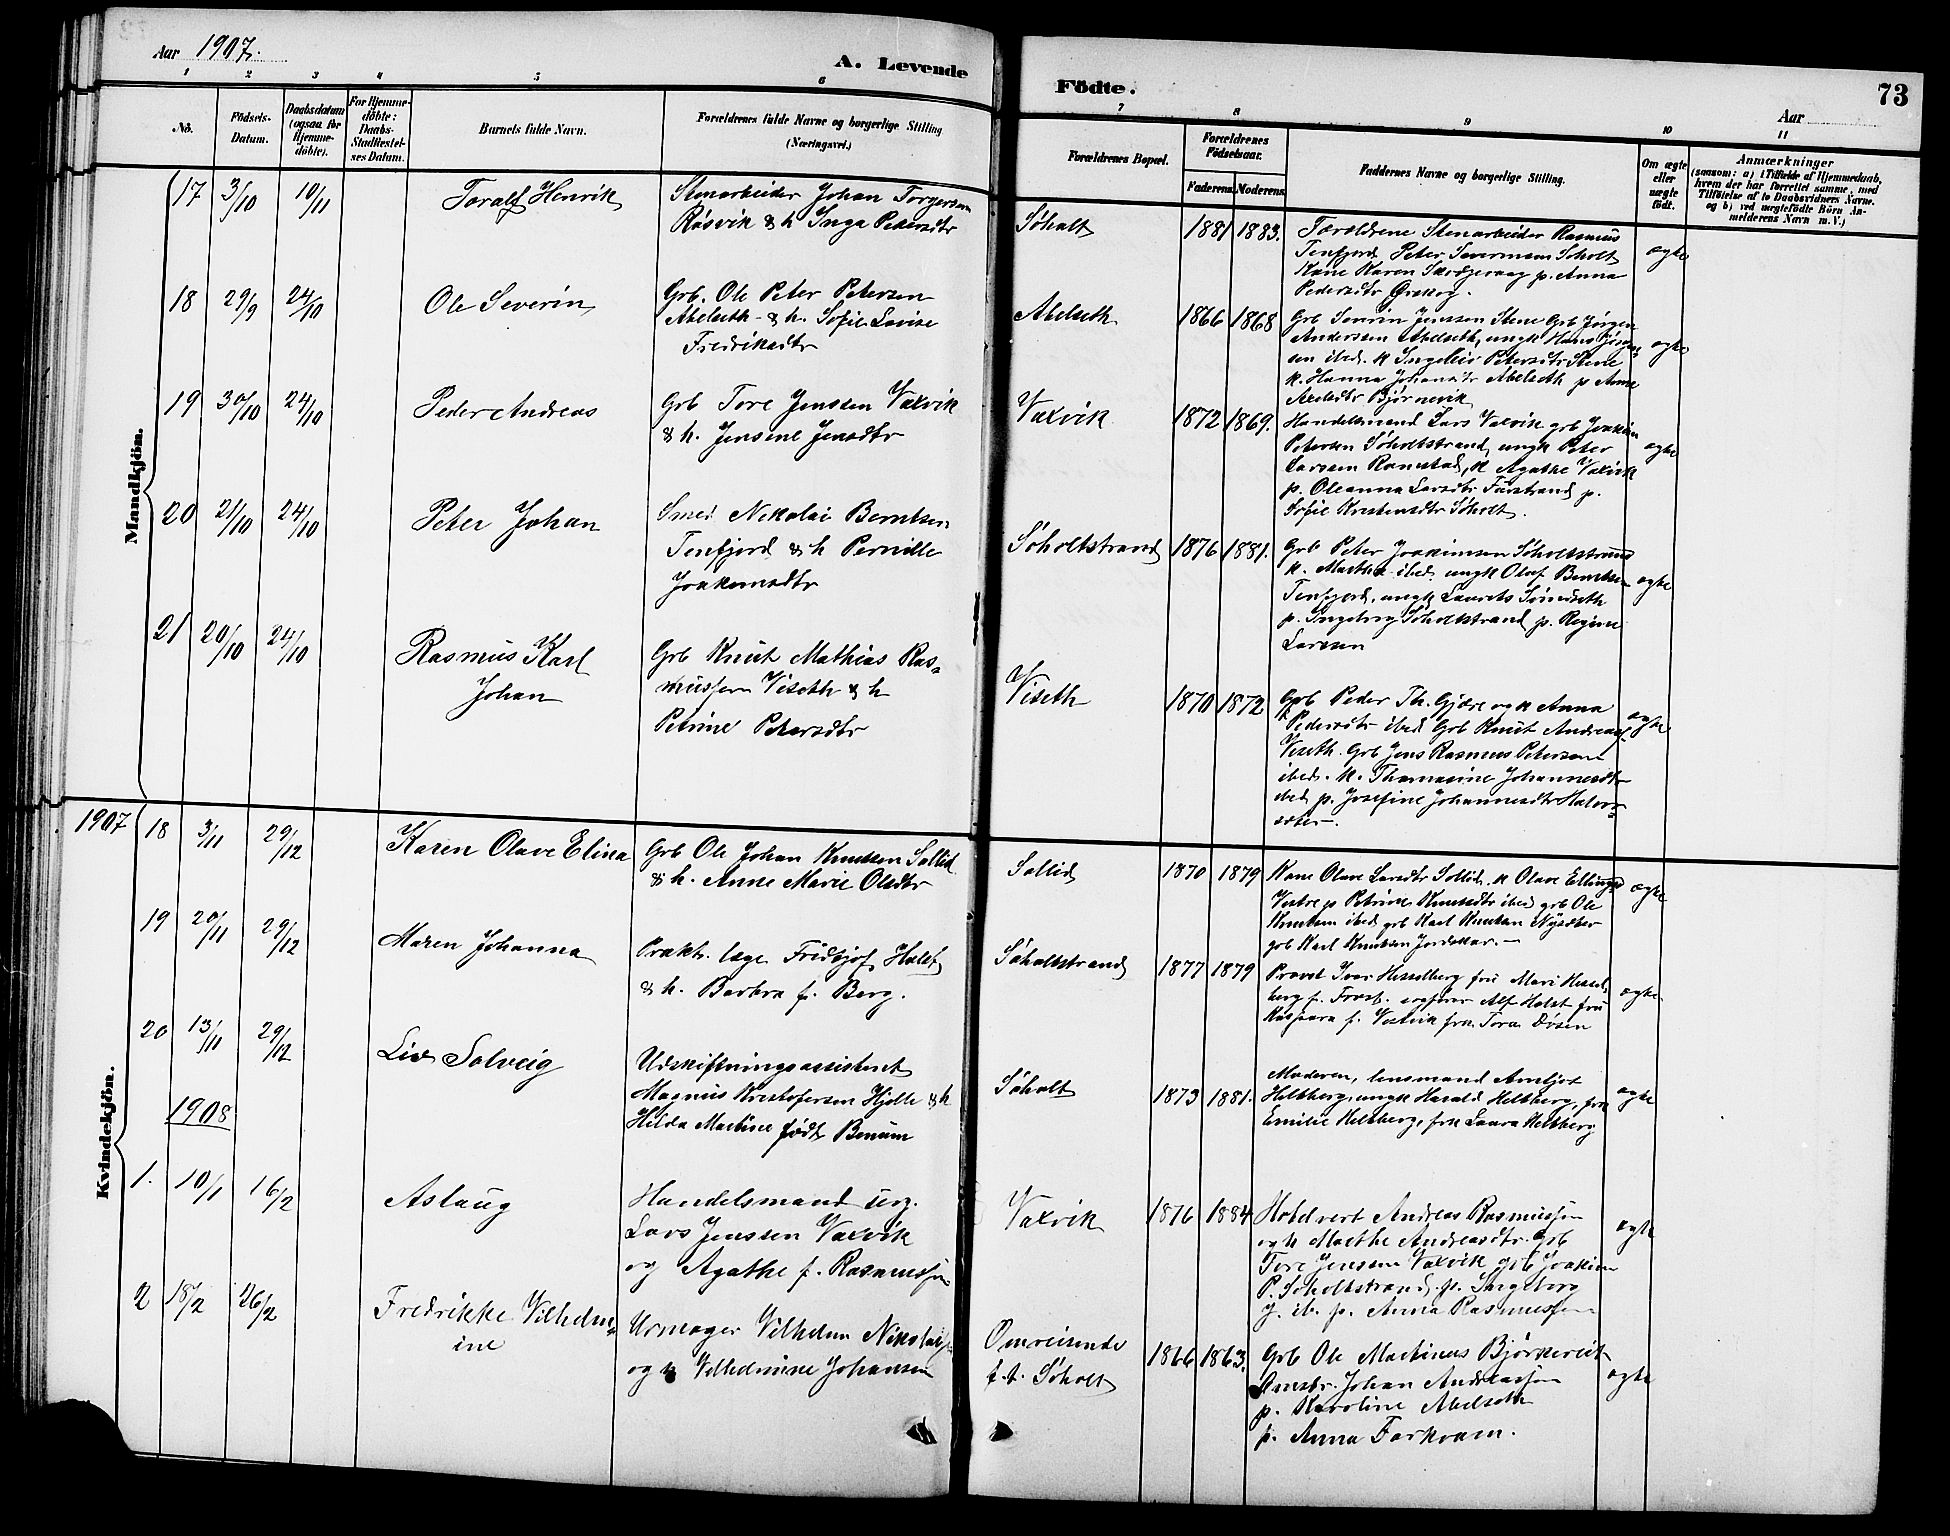 Aar 1907.
A. Levende
Födte.
73
Aar
1 2 3 4 5 6 7 8 9 10 11
No.
Födsels-
Datum.
Daabsdatum
(ogsaa for
Hjemme-
döbte).
For Hjemme-
döbte:
Daabs-
Stadfæstel-
ses Datum.
Barnets fulde Navn.
Forældrenes fulde Navne og borgerlige Stilling
(Næringsvei.)
Forældrenes Bopæl.
Forældrenes
Födselsaar.
Faderens. Moderens.
Faddernes Navne og borgerlige Stilling.
Om ægte
eller
uægte
født.
Anmærkninger
(saasom: a) i Tilfælde af Hjemmedaab,
hvem der har forrettet samme, med
Tilföielse af to Daabsvidners Navne.
og b) ved uægtefödte Börn An-
melderens Navn m. V.)
Mandkjön.
17 3/10 10/11 Toralf Henrik
Stenarbeider Johan Torgersen
Røsvik & h Inga Pedersdtr
Søholt 1881 1883.
Forældrene Stenarbeider Rasmus
Tenfjord Peter Severinsen Søholt
Kone Karen p. Anna
Pedersdtr Ørskog.
ægte
18 29/9 24/10 Ole Severin
Grb. Ole Peter Petersen
Abelseth & h. Sofie Lovise
Fredriksdtr
Abelseth 1866 1868
Grb Severin Jenssen Stene Grb Jørgen
Anderssen Abelseth, ungk Hans
sen ibed. k Ingeleiv Petersdtr Stene
k. Hanna Johansdtr Abelseth p Anne
Axelsdtr Bjørnevik
ægte
19 30/10 24/10 Peder Andreas
Grb Tore Jenssen Vaxvik
& h. Jensine Jensdtr
Vaxvik 1872 1869.
Handelsmand Lars Vaxvik grb Joakim
Petersen Søholtstrand, ungk Peter
Larssen Ramstad, k Agathe Vaxvik
p. Oleanna Larsdtr Furstrand p.
Sofie Kristensdtr Søholt.
ægte
20 21/10 24/10 Peter Johan
Smed Nikolai Berntsen
Tenfjord & h Pernille
Joakimsdtr
Søholtstrand 1876 1881.
Grb Peter Joakimsen Søholtstrand
k. Marthe ibed. ungk Olaf Berntsen
Tenfjord, ungk Laurits
p. Ingeborg Søholtstrand p. Regine
Larssen
ægte
21 20/10 24/10 Rasmus Karl
Johan
Grb Knut Mathias Ras-
mussen Viseth & h
Petrine Petersdtr
Viseth 1870 1872
Grb Peder Th. Gjære og k Anna
Pedersdtr ibed Grb Knut Andreas
Viseth. Grb Jens Rasmus Petersen
ibed. k. Thomasine Johannesdtr
ibed p. Josefine Johannesdtr Halvor
sæter.
ægte
Kvindekjön.
1907 18 3/11 29/12 Karen Olave Elina
Grb Ole Johan Knutsen Sollid
& h. Anne Marie Olsdtr
Sollid 1870 1879
Kone Olave Larsdtr Sollid. k Olave Ellingsd
Vestre p Petrine Knutsdtr ibed grb Ole
Knutsen ibed grb Karl Knutsen Nysæter
grb Karl Knutsen
ægte
19 20/11 29/12 Maren Johanna
Prakt. læge Fridtjof Holst
& h. Barbra f. Berg.
Søholtstrand 1877 1879
Provst Ivar Hesselberg fru Mari Hessel-
berg f. Frost. sagfører Alf Holst fru
Kaspara f. Vestvik frk. Tora Døsen
ægte
20 13/11 29/12 Liv Solveig
Udskiftningsassistent
Magnus Kristofersen Hjelle & h
Hilda Martine født Benum
Søholt 1873 1881.
Moderen, lensmand Arneljot
Heltberg, ungk Harald Heltberg, frk
Emilie Heltberg, frk Laura Heltberg
ægte
1908
1. 10/1 16/2 Aslaug
Handelsmand
Lars Jenssen Vaxvik
og Agathe f. Rasmussen
Vaxvik 1876 1884
Hotelvert Andreas Rasmussen
og h Marthe Andreasdtr. Grb
Tore Jenssen Vaxvik grb Joakim
P. Søholtstrand, p. Ingeborg
J. ib. p. Anna Rasmussen
ægte
2 18/2 26/2 Fredrikke Vilhelm-
ine
Urmager Vilhelm Nikolai
og h Vilhelmine Johansen
Omreisende
f. t. Søholt
1866 1863.
Grb Ole Martinus
Johan Andreassen
p. Karoline Abelseth
p. Anna Farkvam.
ægte